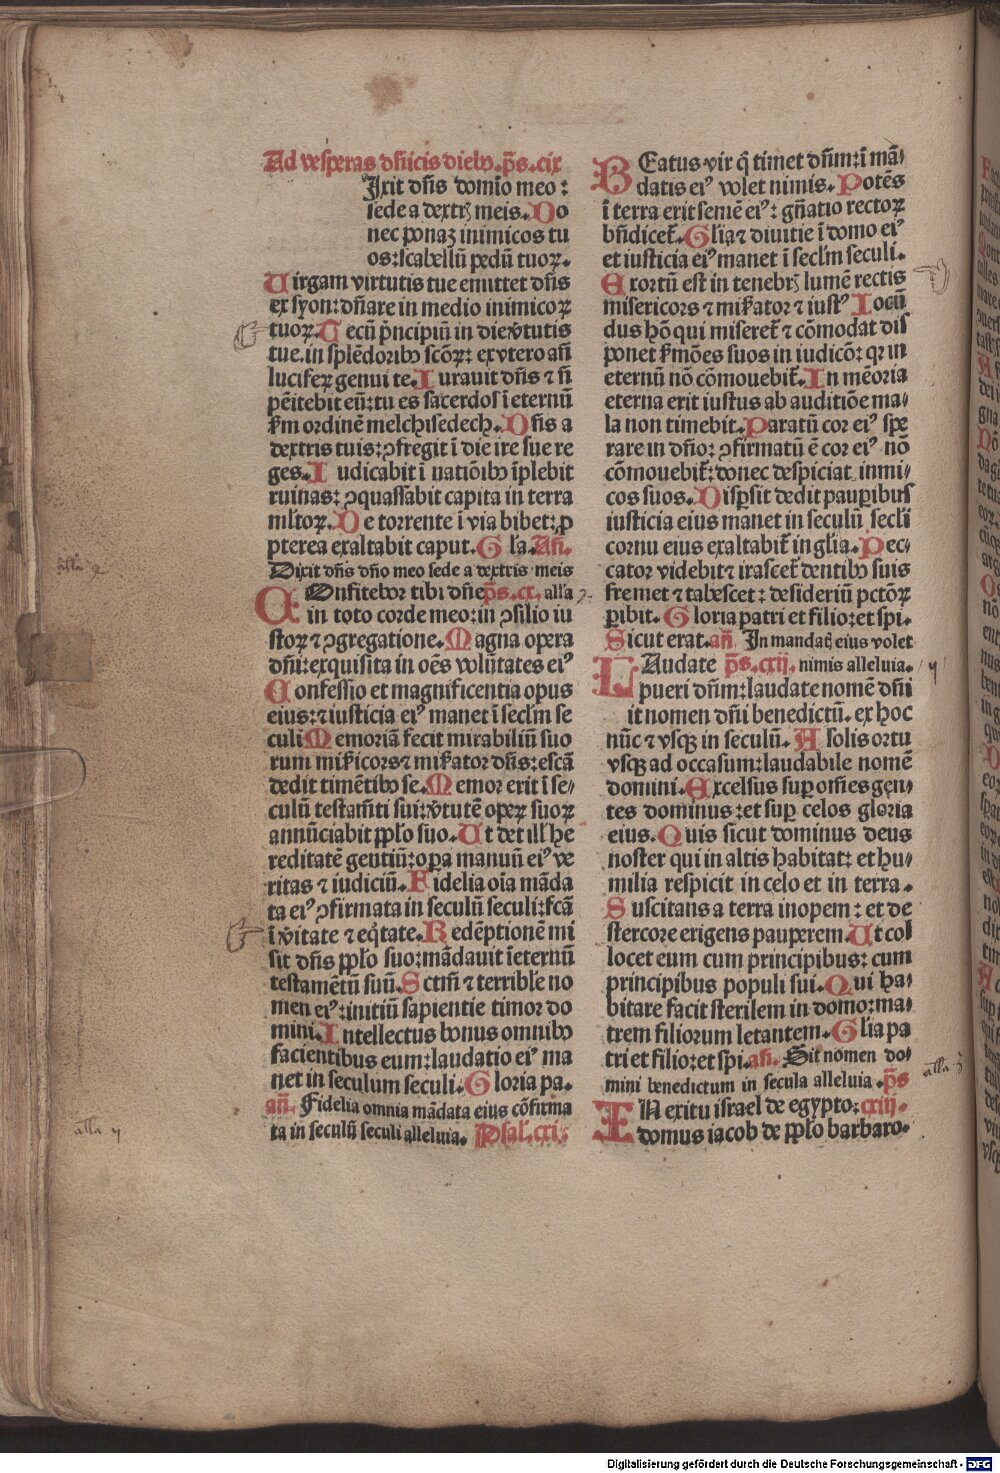 Ad vesperas dn̄icis diebꝫ. p̄s. cix
Ixit dn̄s domīo meo :
sede a dextrꝭ meis. Do
nec ponaʒ inimicos tu
os: scabellū pedū tuoꝝ.
Uirgam virtutis tue emittet dn̄s
ex syon: dn̄are in medio inimicoꝝ
tuoꝝ. Tecū p̄ncipiū in die v̄tutis
tue. in splēdoribꝫ scōꝝ: ex vtero an̄
luciferꝝ genui te. Iurauit dn̄s ⁊ n̄
pēitebit eū: tu es sacerdos ī eternū
ẜm ordinē melchisedech. Dn̄s a
dextris tuis: ꝯfregit ī die ire sue re
ges. Iudicabit ī natiōibꝫ īplebit
ruinas: ꝯquassabit capita in terra
ml̄toꝝ. De torrente ī via bibet: ꝓ
pterea exaltabit caput. Gl̄a. An̄.
Dixit dn̄s dn̄o meo sede a dextris meis
COnfitebor tibi dn̄e p̄s. cx. all'a
in toto corde meo: in ꝯsilio iu
stoꝝ ⁊ ꝯgregatione. Magna opera
dn̄i: exquisita in oēs volūtates eiꝰ
Confessio et magnificentia opus
eius: ⁊ iusticia eiꝰ manet ī secl̄m se
culi Memoriā fecit mirabiliū suo
rum mīs̄icors ⁊ mis̄ator dn̄s: escā
dedit timētibꝫ se. Memor erit ī se/
culū testam̄ti sui: v̄tutē operꝝ suoꝝ
annūciabit pp̄lo suo. Ut det ill' he
reditatē gentiū: oꝑa manuū eiꝰ ve
ritas ⁊ iudiciū. Fidelia oīa māda
ta eiꝰ ꝯfirmata in seculū seculi: fc̄ā
ī v̄itate ⁊ eq̄tate. Redēptionē mi
sit dn̄s pp̄lo suo: mādauit īeternū
testamētū suū. Sctm̄ ⁊ terrible no
men eiꝰ: initiū sapientie timor do
mini. Intellectus bonus omnibꝫ
facientibus eum: laudatio eiꝰ ma
net in seculum seculi. Gloria pa.
an̄. Fidelia omnia mādata eius cōfirma
ta in seculū seculi alleluia. Psal. cxi.
BEatus vir q̄ timet dn̄m: ī mā/
datis eiꝰ volet nimis. Potēs
ī terra erit semē eiꝰ: gn̄atio rectoꝝ
bn̄dicet̄. Gl̄ia ⁊ diuitie ī domo eiꝰ
et iusticia eiꝰ manet ī secl̄m seculi.
Exortū est in tenebrꝭ lumē rectis
misericors ⁊ mis̄ator ⁊ iustꝰ Iocū
dus hō qui miseret̄ ⁊ cōmodat dis
ponet s̄mōes suos in iudicō: qꝛ in
eternū nō cōmouebit̄. In mēoria
eterna erit iustus ab auditiōe ma/
la non timebit. Paratū cor eiꝰ spe
rare in dn̄o: ꝯfirmatū ē cor eiꝰ nō
cōmouebit̄: donec despiciat inimi/
cos suos. Disꝑsit dedit pauꝑibus
iusticia eius manet in seculū secl̄i
cornu eius exaltabit̄ in gl̄ia. Pec/
cator videbit ⁊ irascet̄ dentibꝫ suis
fremet ⁊ tabescet: desideriū pctōꝝ
ꝑibit. Gloria patri et filio: et spi.
Sicut erat. an̄ In mandatꝭ eius volet
LAudate p̄s. cxij. nimis alleluia.
pueri dn̄m: laudate nomē dn̄i
it nomen dn̄i benedictū. ex hoc
nūc ⁊ vsqꝫ in seculū. A solis ortu
vsqꝫ ad occasum: laudabile nomē
domini. Excelsus suꝑ om̄es gen/
tes dominus: et suꝑ celos gloria
eius. Quis sicut dominus deus
noster qui in altis habitat: et hu/
milia respicit in celo et in terra.
Suscitans a terra inopem: et de
stercore erigens pauperem. Ut col
locet eum cum principibus: cum
principibus populi sui. Qui ha/
bitare facit sterilem in domo: ma/
trem filiorum letantem. Gl̄ia pa
tri et filio: et spi. an̄. Sit nomen do/
mini benedictum in secula alleluia. p̄s
IN exitu israel de egypto: cxiij.
domus iacob de pp̄lo barbaro.
Digitalisierung gefördert durch die Deutsche Forschungsgemeinschaft - DFG